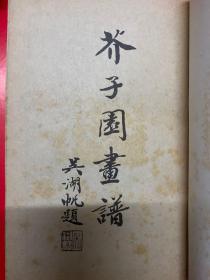 芥子園畫譜
吳湖帆題